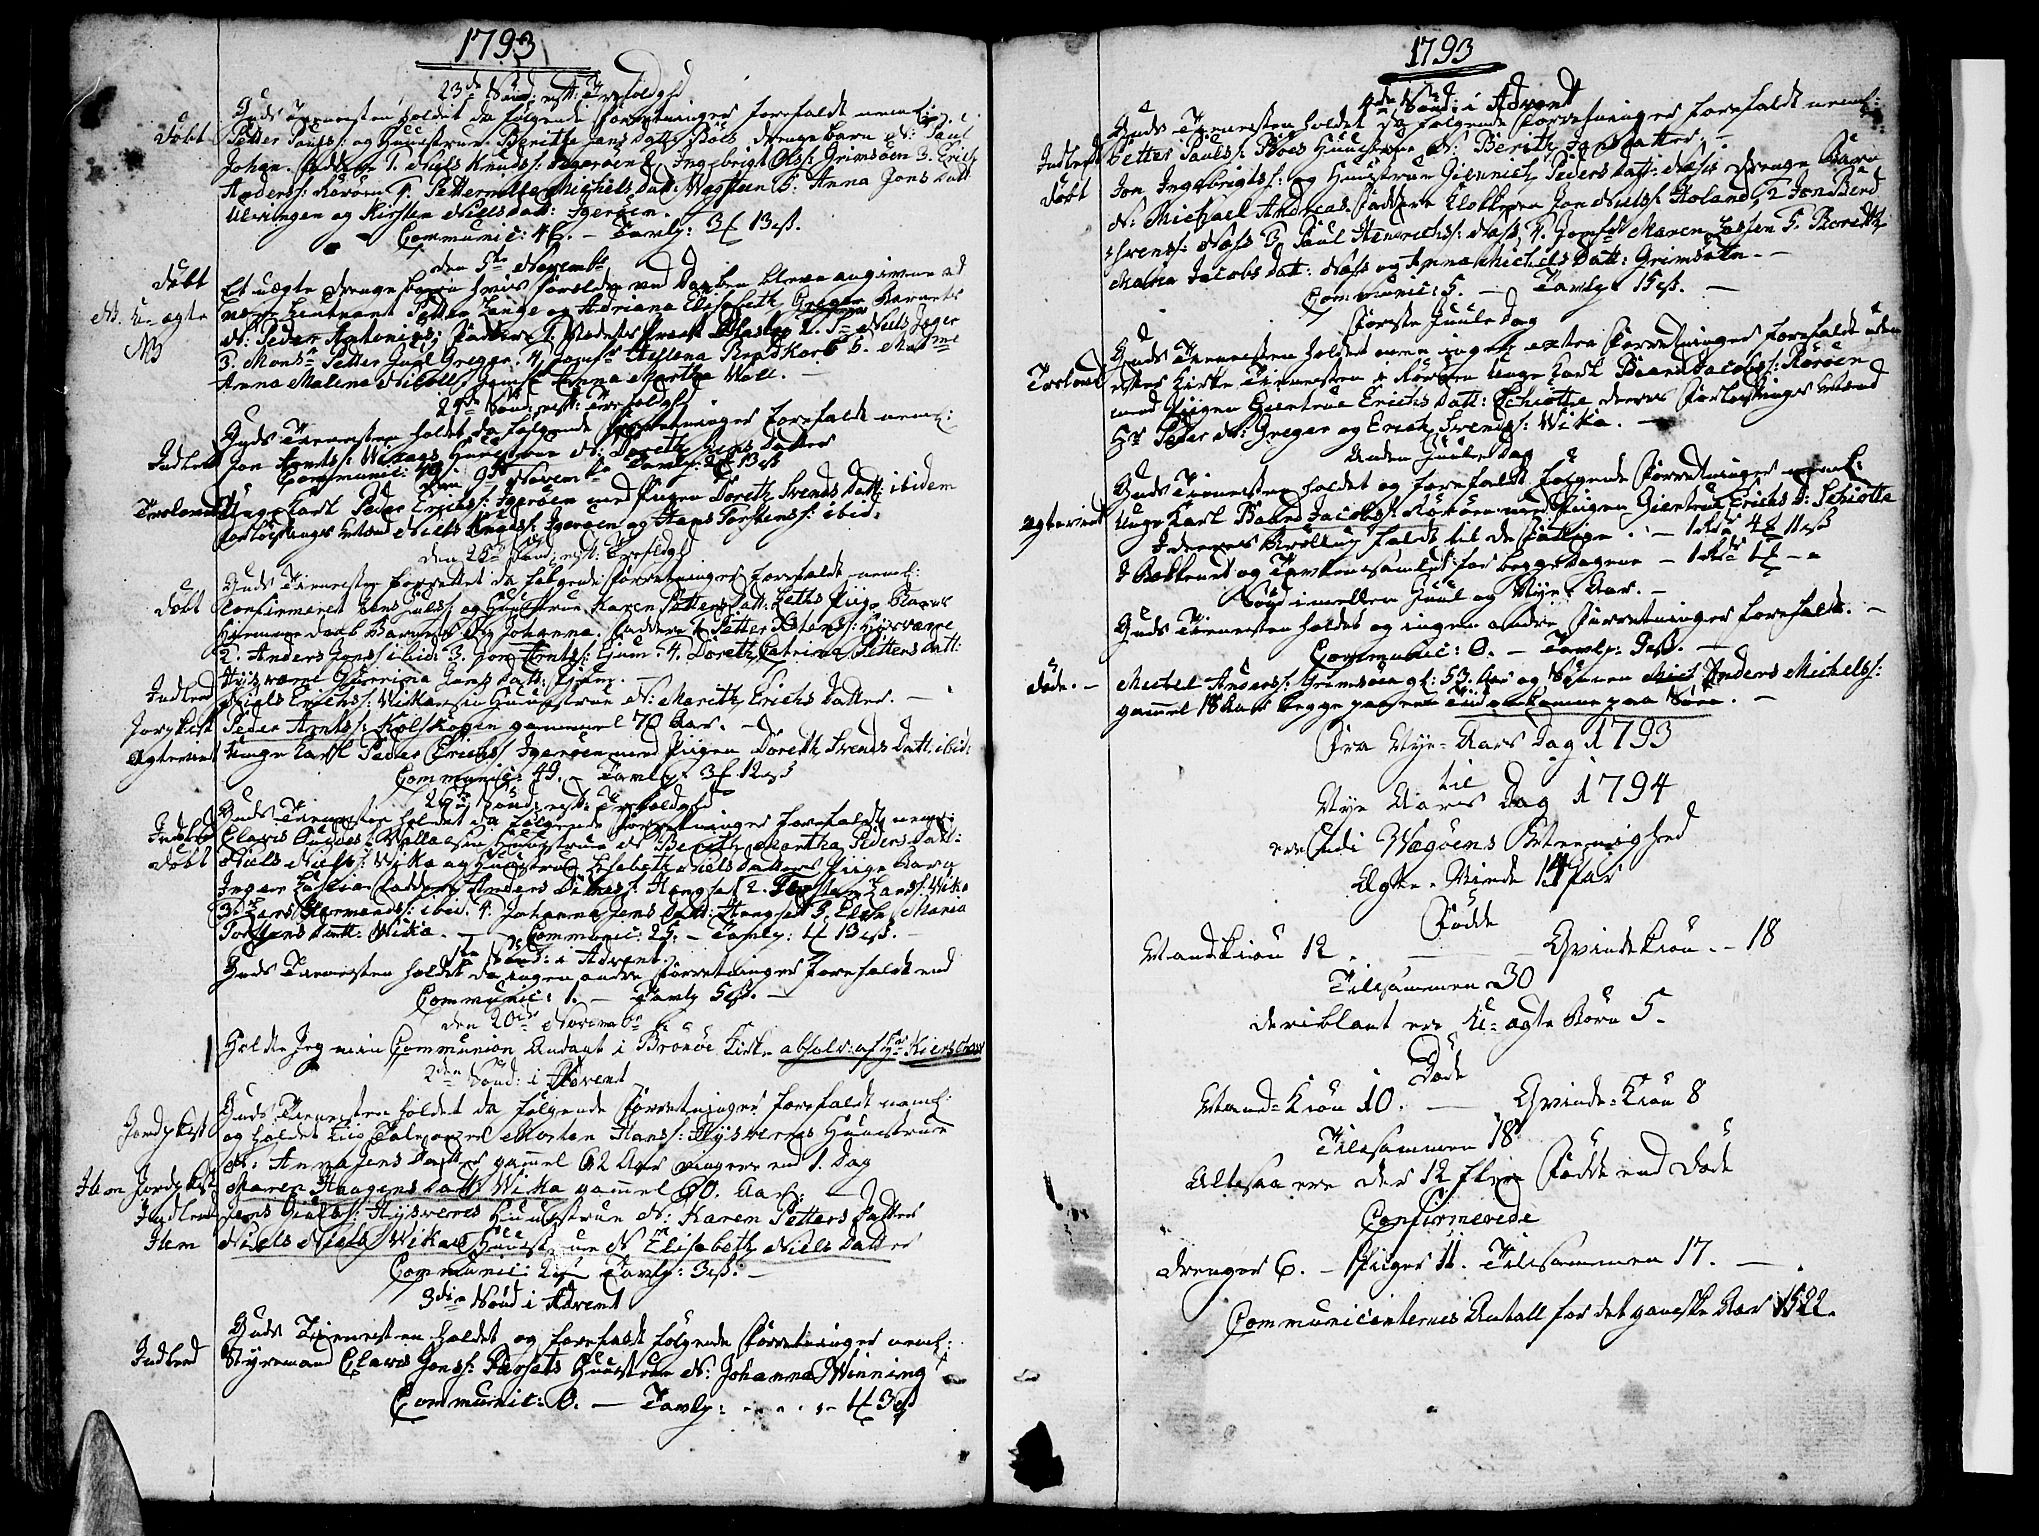 1793
23de Sønd: eft: Trefoldghd
Guds Tienesten holdet da følgende Forretninger forefaldt nemlig:
Døbt Petter Pauls: og Huustrue Berithe Jans Datt: Boes Drengebarn N: Paul
Johan. Faddere 1. Niels Knuds: Igerøen 2. Ingebrigt Ols: Grimsøen 3. Erich
Anders: Rørøen 4. Petternelle Michels Datt: Wægsteen 5. Anna Jons Datt
Ulvingen og Kirsten Niels Datt: Igerøen.
Communic: 46. – Tavlp: 3 13 ß.
den 5te Novembr
Døbt Et uægte Drenge barn hvis Forældre ved Daaben bleve angivne at
N. U-ægte være Leutnant Petter Lange og Adriana Elisabeth Greger Barnets
NB N: Peder Antonius; Faddere 1. 2. Sr Niels Jeger
3. Monsr Petter Juul Greger. 4. Jomfr Hellena Brodkorb 5. Madme
Anna Malena Jomfr Anna Martha Woll. –
24de Sønd: eft: Trefoldghd
Guds Tienesten holdet da følgende Forretninger forefaldt neml:
Indled Jon Arents: Wikaas Huustrue N: Dorethe Jens Datter
Communic: 49. – Tavlp: 13 ß
den 9de Novembr
Trolovet Unge Karl Peder Erichs: Igerøen med Pigen Dorethe Svends Datt: ibidem
Forløvnings Mænd Niels Knuds: Igerøen og Hans Torstens: ibid:
den 25de Sønd: eft: Trefoldghd
Guds Tienesten forrettet da følgende Forretninger forefaldt neml:
Døbt Confirmeret Jens Juels: og Huustrue Karen Petters Datt: Pige Barns
Hiemme Daab Barnets N: Johanna. Faddere 1. Petter Høysværre
2. Anders Jons: ibid: 3. Jon Arnts: Tjum 4. Dorethe Catrina Petters Datt:
Høysværre Jans Datt: Tjum. –
Indled Niels Erichs: Wikaas Huustrue N: Marith Erichs Datter. –
Jordfæst Peder Arnts: Kolskogen gammel 70 Aar. –
Ægteviet Unge Karl Peder Erichs: Igerøen med Pigen Dorethe Svends Datt: ibid:
Communic: 49. – Tavlp: 3 12 ß
26de Sønd: eft: Trefoldghd
Guds Tienesten holdet da følgende Forretninger forefaldt neml:
Indled Claus Huustrue N: Berethe Martha Peders Datt:
Døbt Niels Niels: Wika og Huustrue Elisabeth Niels Datters Pige Barn
Inger Faddere Anders Hongset 2. Lars: Wika
3. Lars ibid: 4. Johanna Jens Datt: Hongset 5. Maria
Torstens Datt: Wika. – Communic: 25. – Tavlp: 13 ß. –
1te Sønd: i Advent.
Guds Tienesten holdet da ingen andre Forretninger forefaldt end
Communic: 1. – Tavlp 5 ß. –
den 20de Novembr
Holdte Jeg min Communion Andagt i Brønøe Kirke absolv: af Hr Kierschow
2den Sønd: i Advent
Guds Tienesten holdet da følgende Forretninger forefaldt neml:
Jordfæst og holdet Liig Tale over Morten Hans: Høysværres Huustrue
N: Anna Jens Datter gamel 62 Aar ringere end 1. Dag
Item Jordfæst Maren Haagens Datt: Wika gamel 80. Aar. –
Indled Jens Juels: Høysværres Huustrue N: Karen Petters Datter
Item Niels Niels: Wikaas Huustrue N: Elisabeth Niels Datter
Communic: Tavlp: 3 ß. –
3die Sønd i Advent
Guds Tienesten holdet og forefaldt følgende Forretninger neml:
Indled Styremand Claus Jons: Huustrue N: Johanna Winning
Communic: 0. – Tavlp: . . . . – 3 ß
1793
4de Sønd: i Advent
Guds Tienesten holdet da følgende Forretninger forefaldt neml:
Indled Petter Pauls: Boes Huustrue N: Berith Jans Datter. –
Døbt Jon Ingebrigts: og Huustrue Giennich Peders Datt: Næss Drenge Barn
N: Michael Andreas. Faddere Klokkeren Jon Niels: Holand, 2. Jon
Svends: Næss 3. Paul Henrichs: Næss, 4. Jomfr Maren Jessen 5. Berethe
Malna Jacobs Datt: Næss og Anna Michels Datt: Grimsøen. –
Communic: 5. – Tavlp 15 ß. –
Første Juule Dag
Guds Tienesten holdet men ingen extra Forretninger forefaldt uden
Trolovet efter Kirke Tienesten i Rørøen Unge Karl Baard Jacobs: Rørøen
med Pigen Giertrue Erichs Datt: Schiotte deres Forlovnings Mænd
Hr Peder N: Greger og Erich Svends: Wika. –
Anden Juule Dag
Guds Tienesten holdet og forefaldt følgende Forretninger neml:
Ægteviet Unge Karl Baard Jacobs: Rørøen med Pigen Giertrue Erichs D: Schiotte
I deres Brøllup faldt til de Fattige. – 1 Rdr 4 11 ß
I Bøkkenet og Tavlen samlet for begge Dagene – 1 Rdr 1 –
Sønd imellem Juul og Nye Aar. –
Guds Tienesten holdet og ingen andre Forretninger forefaldt. –
Communic: 0. – Tavlp: 9 ß. –
Døde. – Michel Anders: Grimsøen gl: 53. Aar og Sønnen Anders Michels:
gamel 18 Aar begge paa een Tiid omkomne paa Søen. –
Fra Nye-Aars Dag 1793
til
Nye Aars Dag 1794
ere udi Wægøens Kaldsmenighed
Ægte-Viede 14 Par
Fødde
Mandkiøn 12. – Qvindekiøn. – 18
Tilsammen 30
deriblant ere U-ægte Børn 5.
Døde
Mand-Kiøn 10. – Qvinde-Kiøn 8
Tilsammen 18
Altsaa ere der 12 flere Fødde end Døde
Confirmerede
Drenger 6. – Piiger 11. Tilsammen 17. –
Communicanternes Antall for det ganske Aar 1522.